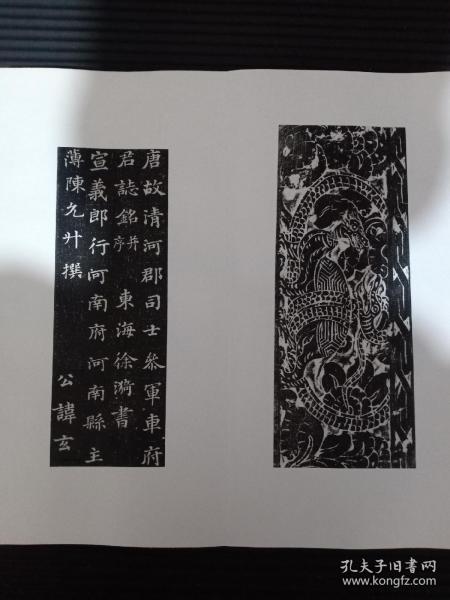 唐故清河郡司士叅軍車府
君誌銘并序 東海徐漪書
宣義郎行河南府河南縣主
薄陳允廾撰 公諱玄
孔夫子旧书网
www.kongfz.com